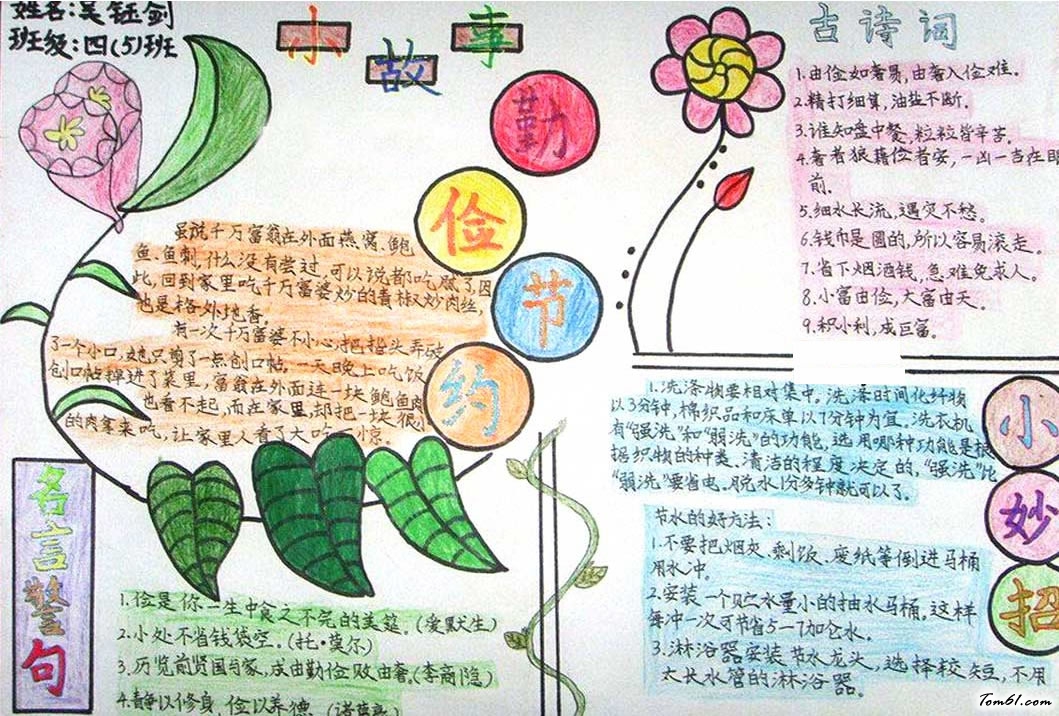 姓名:吴钰剑
班级:四(5)班
小故事
勤俭节约
虽说千万富翁在外面燕窝、鲍
鱼、鱼刺,什么没有尝过,可以说都吃腻了,因
此,回到家里吃千万富婆炒的青椒炒肉丝,
也是格外地香。
有一次千万富婆不小心,把指头弄破
了一个小口,她只剪了一点创口帖,一天晚上吃饭
创口帖掉进了菜里,富翁在外面连一块鲍鱼肉
也看不起,而在家里,却把一块很小
的肉拿来吃,让家里人看了大吃一惊。
名言警句
1.俭是你一生中食之不完的美筵。(爱默生)
2.小处不省钱袋空。(托·莫尔)
3.历览前贤国与家,成由勤俭败由奢。(李商隐)
4.静以修身,俭以养德。(诸葛亮)
古诗词
1.由俭如奢易,由奢入俭难。
2.精打细算,油盐不断。
3.谁知盘中餐,粒粒皆辛苦。
4.奢者狼藉俭者安,一凶一吉在眼
前.
5.细水长流,遇灾不愁。
6.钱币是圆的,所以容易滚走。
7.省下烟酒钱,急难免求人。
8.小富由俭,大富由天。
9.积小利,成巨富。
小妙招
1.洗涤物要相对集中。洗涤时间化纤物
以3分钟,棉织品和床单以7分钟为宜。洗衣机
有“强洗”和“弱洗”的功能,选用哪种功能是根
据织物的种类、清洁的程度决定的,“强洗”比
“弱洗”要省电。脱水1分多钟就可以了。
节水的好方法:
1.不要把烟灰、剩饭、废纸等倒进马桶
用水冲。
2.安装一个贮水量小的抽水马桶。这样
每冲一次可节省5-7加仑水。
3.淋浴器安装节水龙头,选择较短,不用
太长水管的淋浴器。
Tom61.com